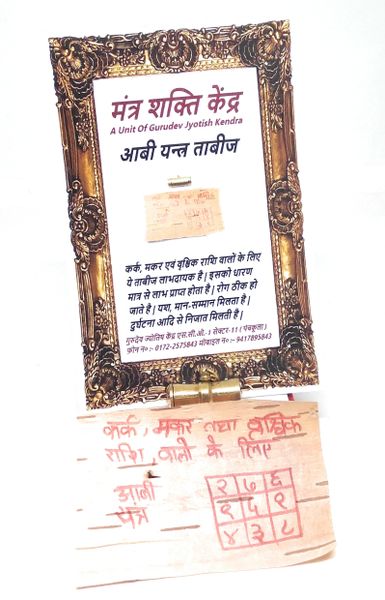 मंत्र शक्ति केंद्र
A Unit Of Gurudev Jyotish Kendra
आबी यन्त्र ताबीज
कर्क, मकर एवं वृश्चिक राशि वालों के लिए
ये ताबीज लाभदायक है | इसको धारण
मात्र से लाभ प्राप्त होता है | रोग ठीक हो
जाते है | यश, मान-सम्मान मिलता है |
दुर्घटना आदि से निजात मिलती है |
गुरुदेव ज्योतिष केंद्र एस.सी.ओ.-1 सेक्टर-11 ( पंचकूला )
फ़ोन न०:- 0172-2575843 मोबाइल न०:- 9417895843
कर्क, मकर तथा वृश्चिक
राशि, वालो के लिए
आबी
यंत्र
२ ७ ६
९ ५ १
४ ३ ८